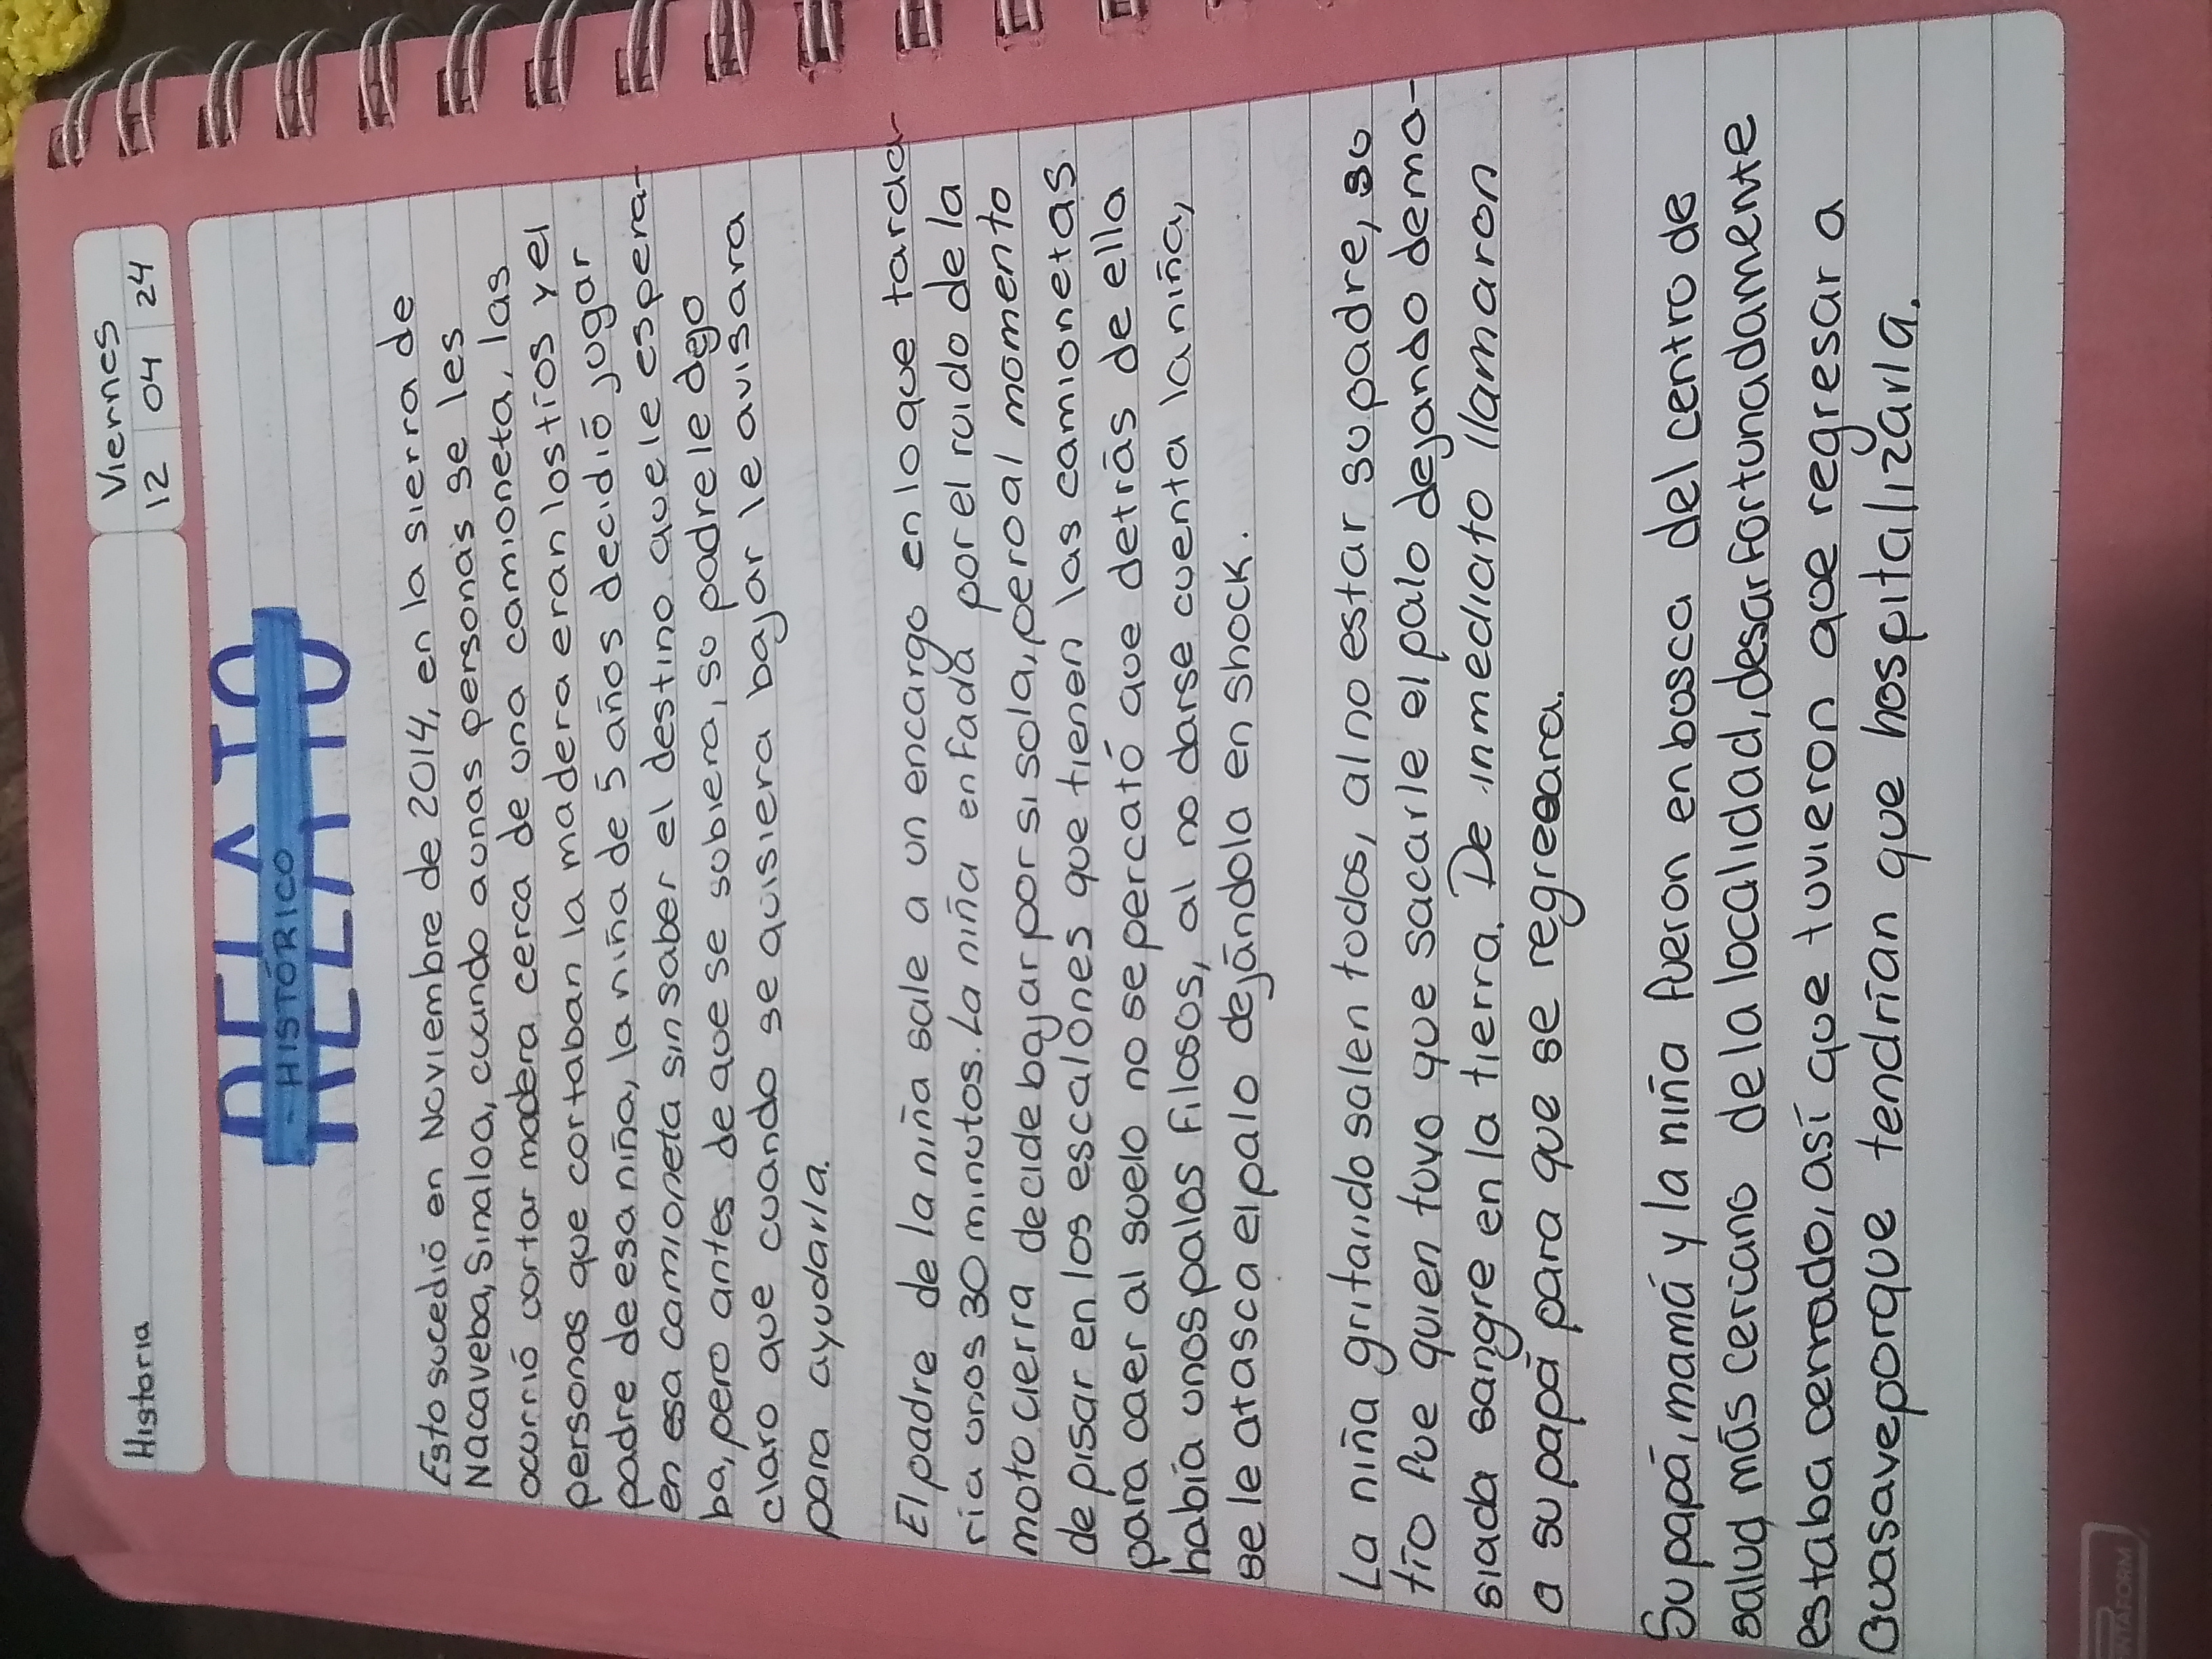 Historia
Viernes
12 04 24
RELATO
- HISTÓRICO
Esto sucedió en Noviembre de 2014, en la sierra de
Nacaveba, Sinaloa, cuando a unas personas se les
ocurrió cortar madera cerca de una camioneta, las
personas que cortaban la madera eran los tíos y el
padre de esa niña, la niña de 5 años decidió jugar
en esa camioneta sin saber el destino que le espera-
ba, pero antes de que se subiera, su padre le dejo
claro que cuando se quisiera bajar le avisara
para ayudarla.
El padre de la niña sale a un encargo en lo que tarda-
ría unos 30 minutos. La niña enfada por el ruido de la
moto cierra decide bajar por si sola, pero al momento
de pisar en los escalones que tienen las camionetas
para caer al suelo no se percató que detrás de ella
había unos palos filosos, al no darse cuenta la niña,
se le atasca el palo dejándola en shock.
La niña gritando salen todos, al no estar su padre, su
tío fue quien tuvo que sacarle el palo dejando dema-
siada sangre en la tierra. De inmediato llamaron
a su papá para que se regresara.
Su papá, mamá y la niña fueron en busca del centro de
salud más cercano de la localidad, desarfortunadamente
estaba cerrado, así que tuvieron que regresar a
Guasave porque tendrían que hospitalizarla.